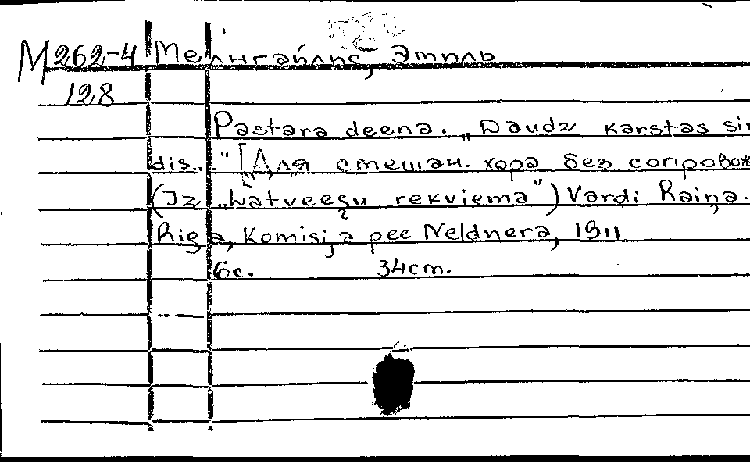 М 262-4 Мелнгайлис, Эмиль
128
Pastara deena. „Daudz karstas sir
dis..." [Для смешан. хора без сопровож
(Iz „Latveešu rekviema") Vārdi Raiņa.
Rigā, Komisijā pee Neldnera, 1911
6с. 34cm.